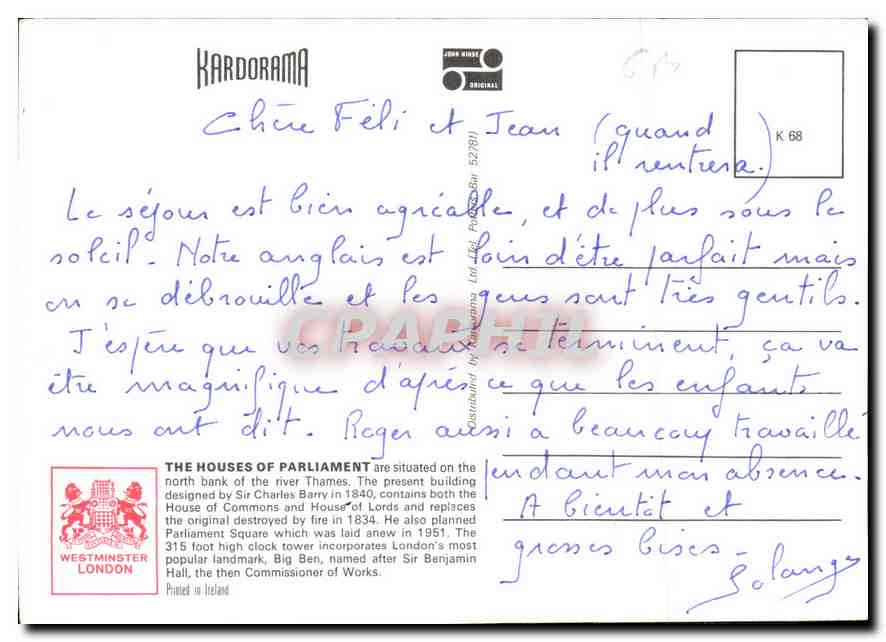 KARDORAMA
JOHN HINDE
ORIGINAL
K 68
Chère Féli et Jean (quand
il rentrera.)
Le séjour est bien agréable, et de plus sous le
soleil. Notre anglais est loin d'être parfait mais
on se débrouille et les gens sont très gentils.
J'espère que vos travaux se terminent, ça va
être magnifique d'après ce que les enfants
nous ont dit. Roger aussi a beaucoup travaillé
pendant mon absence.
A bientôt et
grosses bises -
Solange
Distributed by Kardorama Ltd. (Tel. Potters Bar 52781)
CPAPHIL
THE HOUSES OF PARLIAMENT are situated on the
north bank of the river Thames. The present building
designed by Sir Charles Barry in 1840, contains both the
House of Commons and House of Lords and replaces
the original destroyed by fire in 1834. He also planned
Parliament Square which was laid anew in 1951. The
315 foot high clock tower incorporates London's most
popular landmark, Big Ben, named after Sir Benjamin
Hall, the then Commissioner of Works.
Printed in Ireland
WESTMINSTER
LONDON